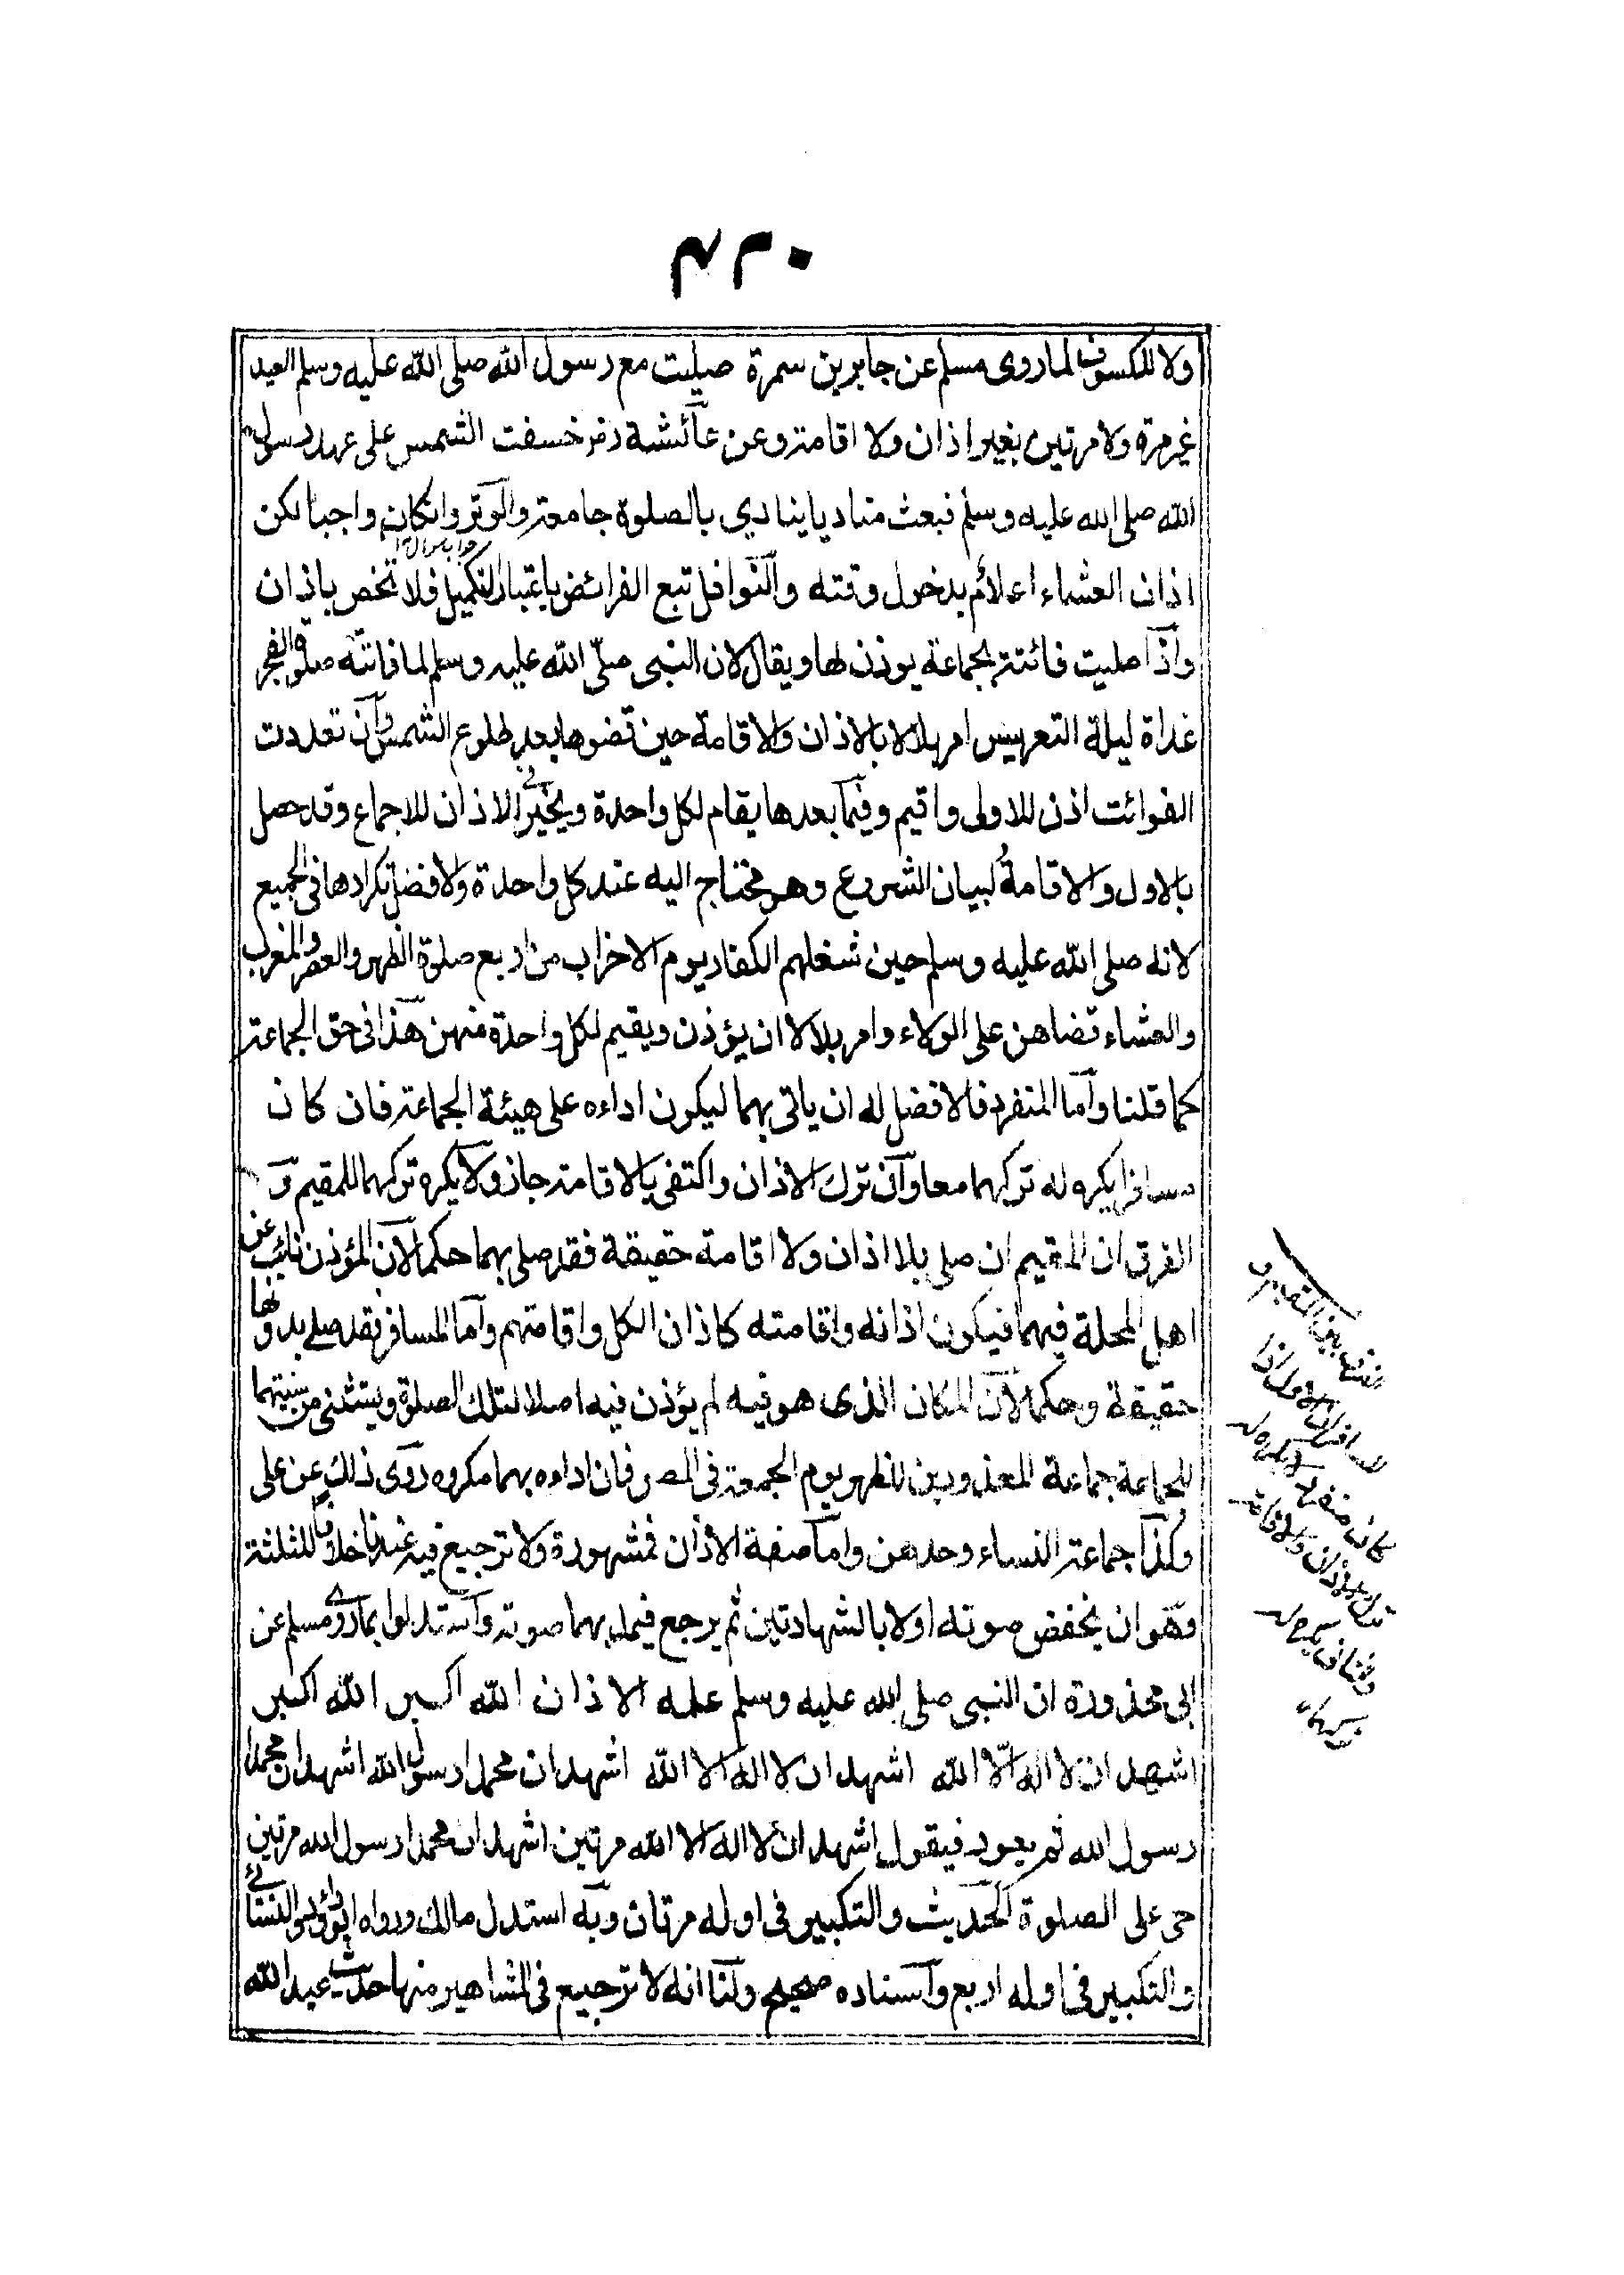 ٤٢٠
ولا للكسوف لما روى مسلم عن جابر بن سمرة صليت مع رسول الله صلى الله عليه وسلم العيد
غير مرة ولا مرتين بغير اذان ولا اقامة وعن عآئشة رضـ خسفت الشمس على عهد رسول
الله صلى الله عليه وسلم فبعث مناديا ينادي بالصلوة جامعة والوتر وانكان واجبا لكن
جواب سوال ١٢
اذان العشاء اعلام بدخول وقته والنوافل تبع الفرائض باعتبار التكميل فلا تخص باذان
واذا صليت فائتة بجماعة يوذن لها ويقال لان النبى صلّى الله عليه وسلم لما فاتته صلوة الفجر
غداة ليلة التعريس امر بلالا بالاذان والاقامة حين قضوها بعد طلوع الشمس وآن تعددت
الفوائت اذن للاولى واقيم وفيما بعدها يقام لكل واحدة ويخيّر فى الاذان للاجماع وقد حصل
بالاول والاقامةُ لبيان الشروع وهو محتاج اليه عند كل واحدة والافضل تكرارها فى الجميع
لانه صلى الله عليه وسلم حين شغلهم الكفار يوم الاحزاب من اربع صلوة الظهر والعصر والمغرب
والعشاء قضاهن على الولاء وامر بلالا ان يؤذن ويقيم لكل واحدة منهن هذا فى حق الجماعة
كما قلنا وآما المنفرد فالافضل له ان ياتى بهما ليكون اداءه على هيئة الجماعة فان كان
مسافرا يكره له تركهما معا وآن ترك الاذان واكتفى بالاقامة جاز ولآ يكره تركهما للمقيم وَ
الفرق ان المقيم ان صلى بلا اذان ولا اقامة حقيقة فقد صلى بهما حكما لآن المؤذن نائب عن
اهل المحلة فيهما فيكون اذانه واقامته كاذان الكل واقامتهم وآما المسافر فقد صلے بدونها
حقيقة وحكما لآن المكان الذى هو فيه لم يؤذن فيه اصلا لتلك الصلوة ويستثنى من سنيتهما
للجماعة جماعة المعذورين للظهر يوم الجمعة فى المصر فان اداءه بهما مكروه روى ذلك عن على
وكذا جماعة النساء وحدهن واما صفة الاذان فمشهورة ولا ترجيع فيه عندنا خلافا للثلثة
وهو ان يخفض صوته اولا بالشهادتين ثم يرجع فيمد بهما صوته وآستدلوا بما روى مسلم عن
ابى محذورة ان النبى صلى الله عليه وسلم علمه الاذان الله اكبر الله اكبر
اشهد ان لا اله الّا الله اشهد ان لا اله الا الله اشهد ان محمدا رسول الله اشهد ان محمدا
رسول الله ثم يعود فيقول اشهد ان لا اله الا الله مرتين اشهد ان محمدا رسول الله مرتين
حى على الصلوة الحديث والتكبير فى اوله مرتان وبه استدل مالك ورواه ابوداؤد والنسائے
والتكبير فى اوله اربع وآسناده صحيح ولنآ انه لا ترجيع فى المشاهير منها حديث عبد الله
الفرق بين المقيم و
المسافر ان الاول اذا
كان منفردا لا يكره له
ترك الاذان والاقامة
والثانى يكره له
تركهما ١٢